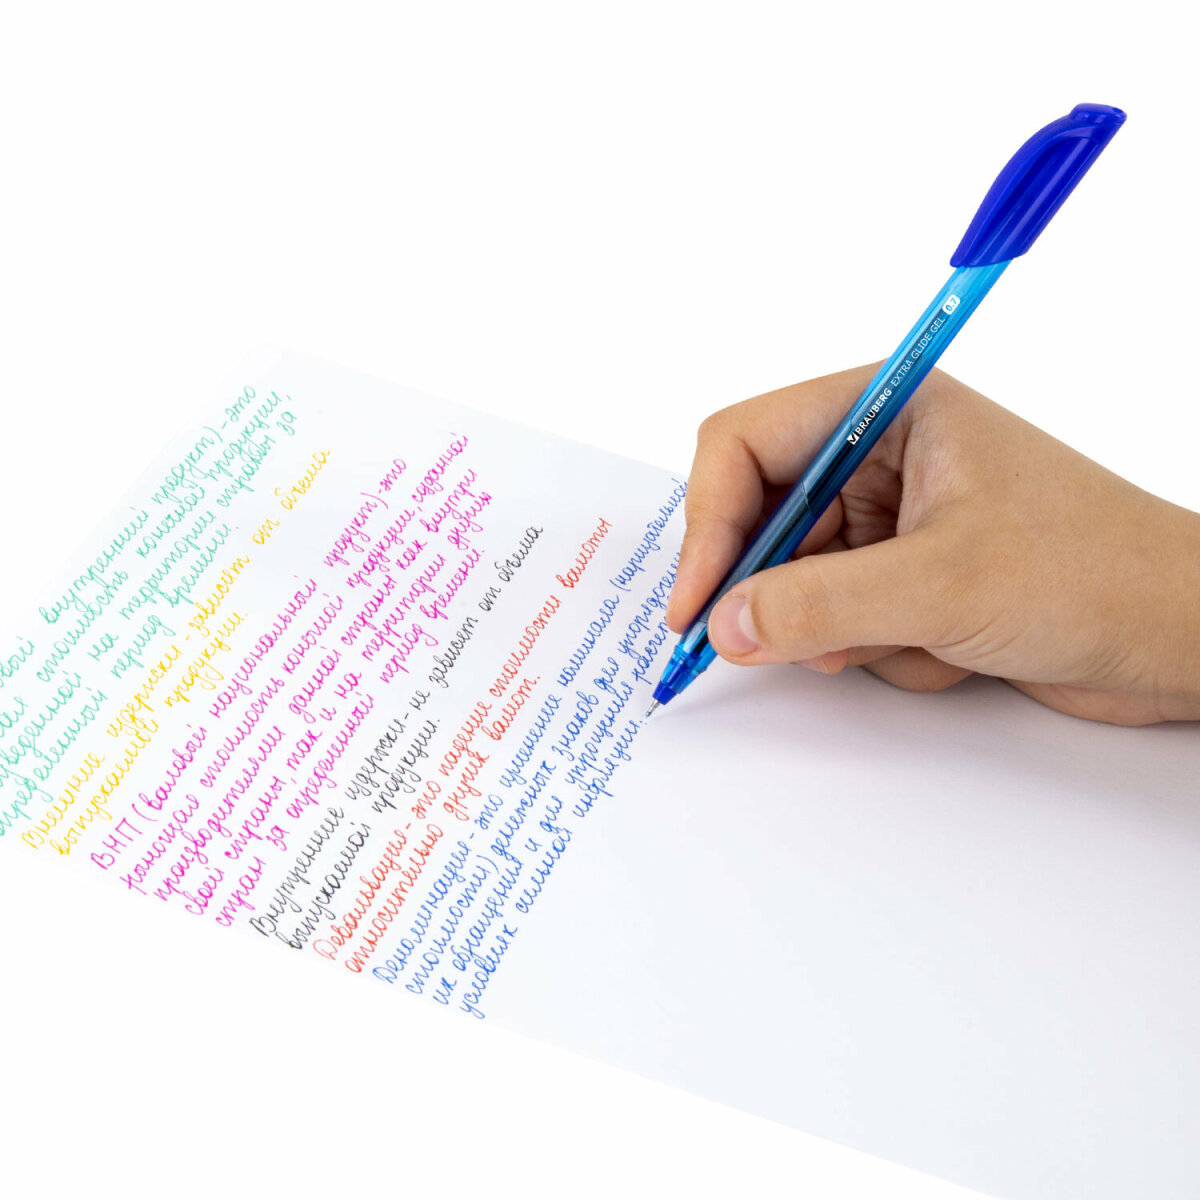 внутренний продукт) - это
стоимость конечной продукции,
на территории страны за
период времени.
Внешние издержки - зависят от объёма
выпускаемой продукции.
ВНП (валовый национальный продукт) - это
стоимость конечной продукции, созданной
производителями данной страны как внутри
своей страны, так и на территории других
стран за определенный период времени.
Внутренние издержки - не зависят от объёма
выпускаемой продукции.
Девальвация - это падение стоимости валюты
относительно других валют.
Деноминация - это изменение номинала (нарицательной
стоимости) денежных знаков для упорядочения
их обращения и для упрощения расчет
условиях сильной инфляции.
BRAUBERG EXTRA GLIDE GEL 0.7